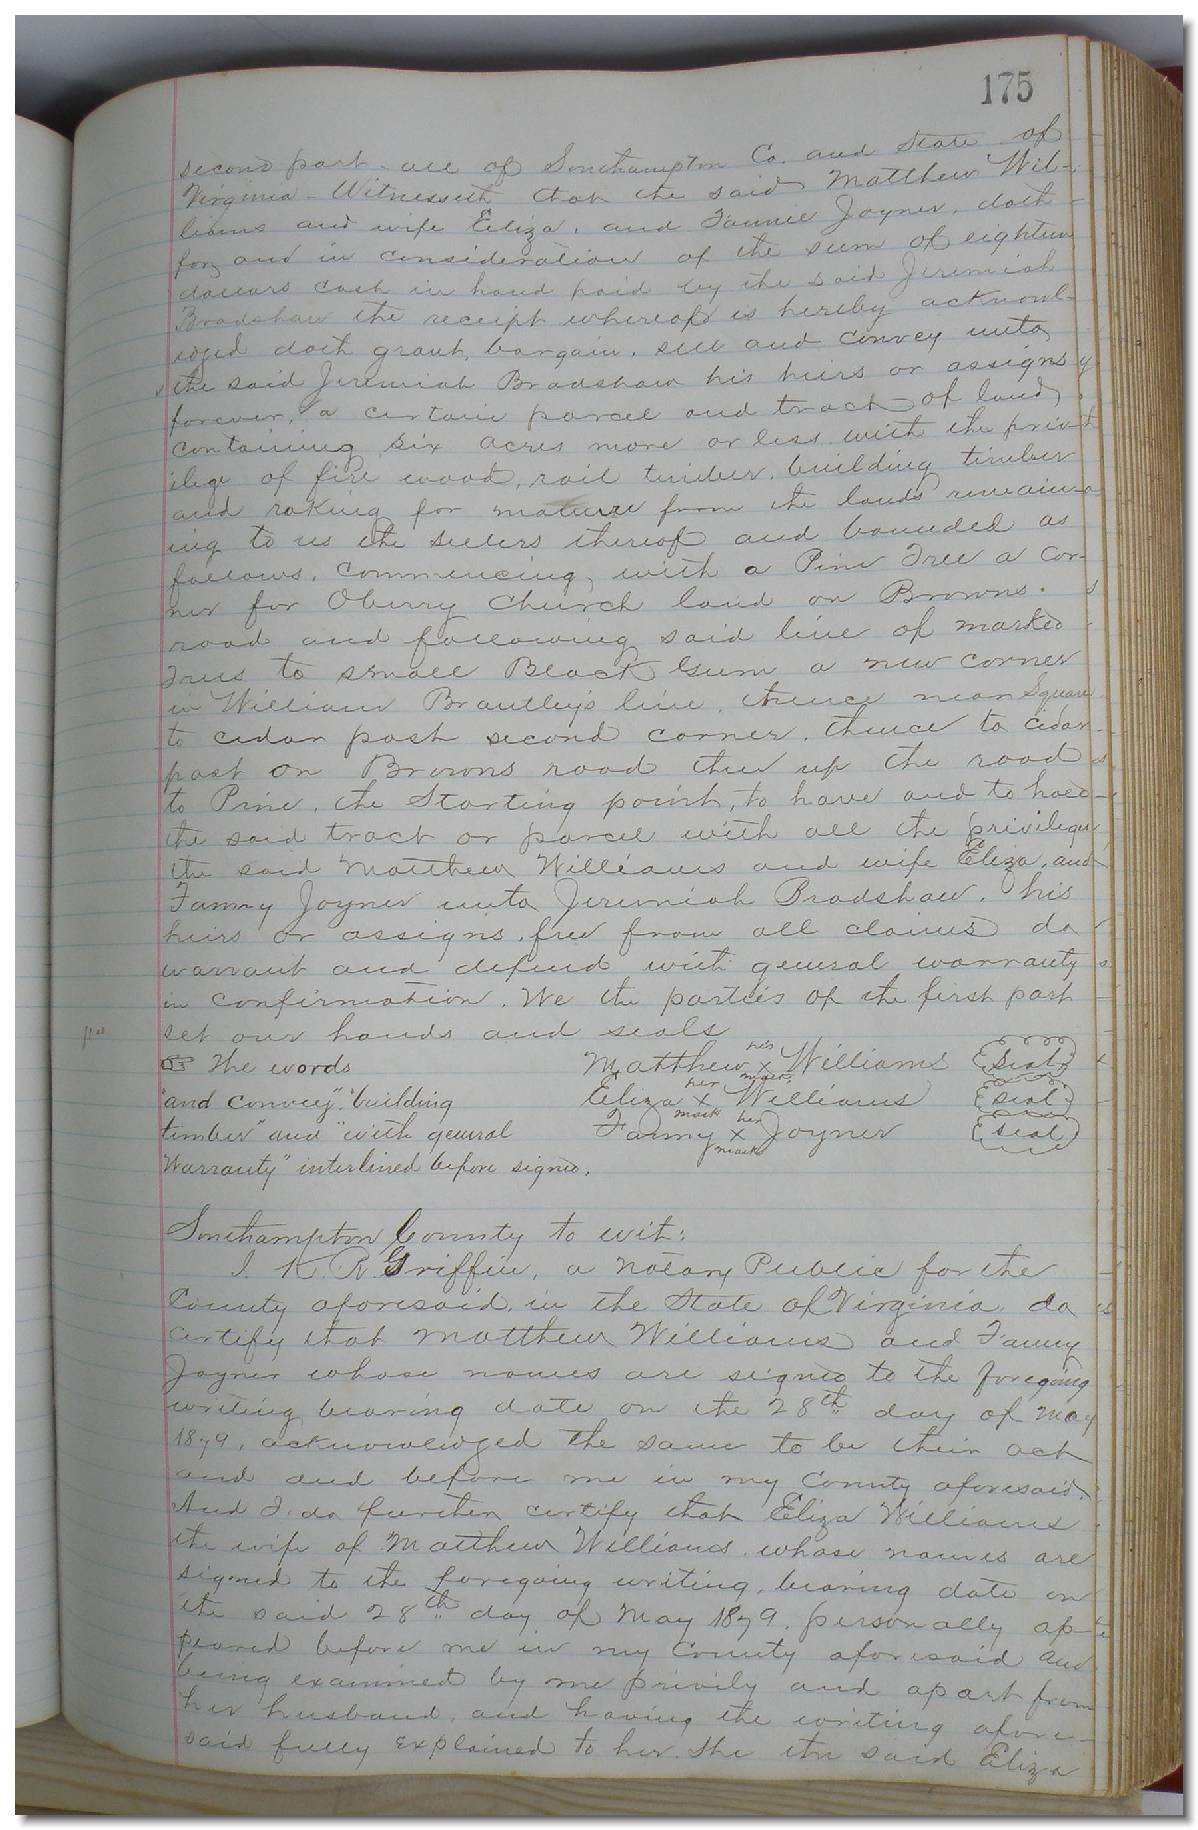 175
second part all of Southampton Co. and State of
Virginia - Witnesseth that the said Matthew Wil-
liams and wife Eliza, and Fannie Joyner, doth
for, and in consideration of the sum of eighteen
dollars cash in hand paid by the said Jeremiah
Bradshaw the receipt whereof is hereby acknowl-
edged doth grant, bargain, sell and convey unto
the said Jeremiah Bradshaw his heirs or assigns
forever, a certain parcel and tract of land,
containing six acres more or less with the priv-
ilege of fire wood, rail timber, building timber
and raking for manure from the lands remain-
ing to us the sellers thereof and bounded as
follows, Commencing, with a Pine Tree a cor-
ner for Oberry Church land on Browns.
road and following said line of marked
Trees to small Black Gum a new corner
in William Brantley's line, thence near Square
to cedar post second corner, thence to cedar
post on Browns road then up the road
to Pine, the Starting point, to have and to hold
the said tract or parcel with all the privileges
the said Matthew Williams and wife Eliza, and
Fanny Joyner unto Jeremiah Bradshaw, his
heirs or assigns, free from all claims do
warrant and defend with general warranty
in confirmation. We the parties of the first part
set our hands and seals
The words Matthew his x mark Williams {seal}
"and convey", "building Eliza her x mark Williams {seal}
timber" and "with general Fanny her x mark Joyner {seal}
Warranty" interlined before signed.
Southampton County to wit:
I. K. R. Griffin, a Notary Public for the
County aforesaid, in the State of Virginia, do
certify that Matthew Williams and Fanny
Joyner whose names are signed to the foregoing
writing bearing date on the 28th day of May
1879, acknowledged the same to be their act
and and before me in my County aforesaid.
And I do further certify that Eliza Williams
the wife of Matthew Williams, whose names are
signed to the foregoing writing, bearing date on
the said 28th day of May 1879, personally ap-
peared before me in my County aforesaid and
being examined by me privily and apart from
her husband, and having the writing afore-
said fully explained to her. She the said Eliza